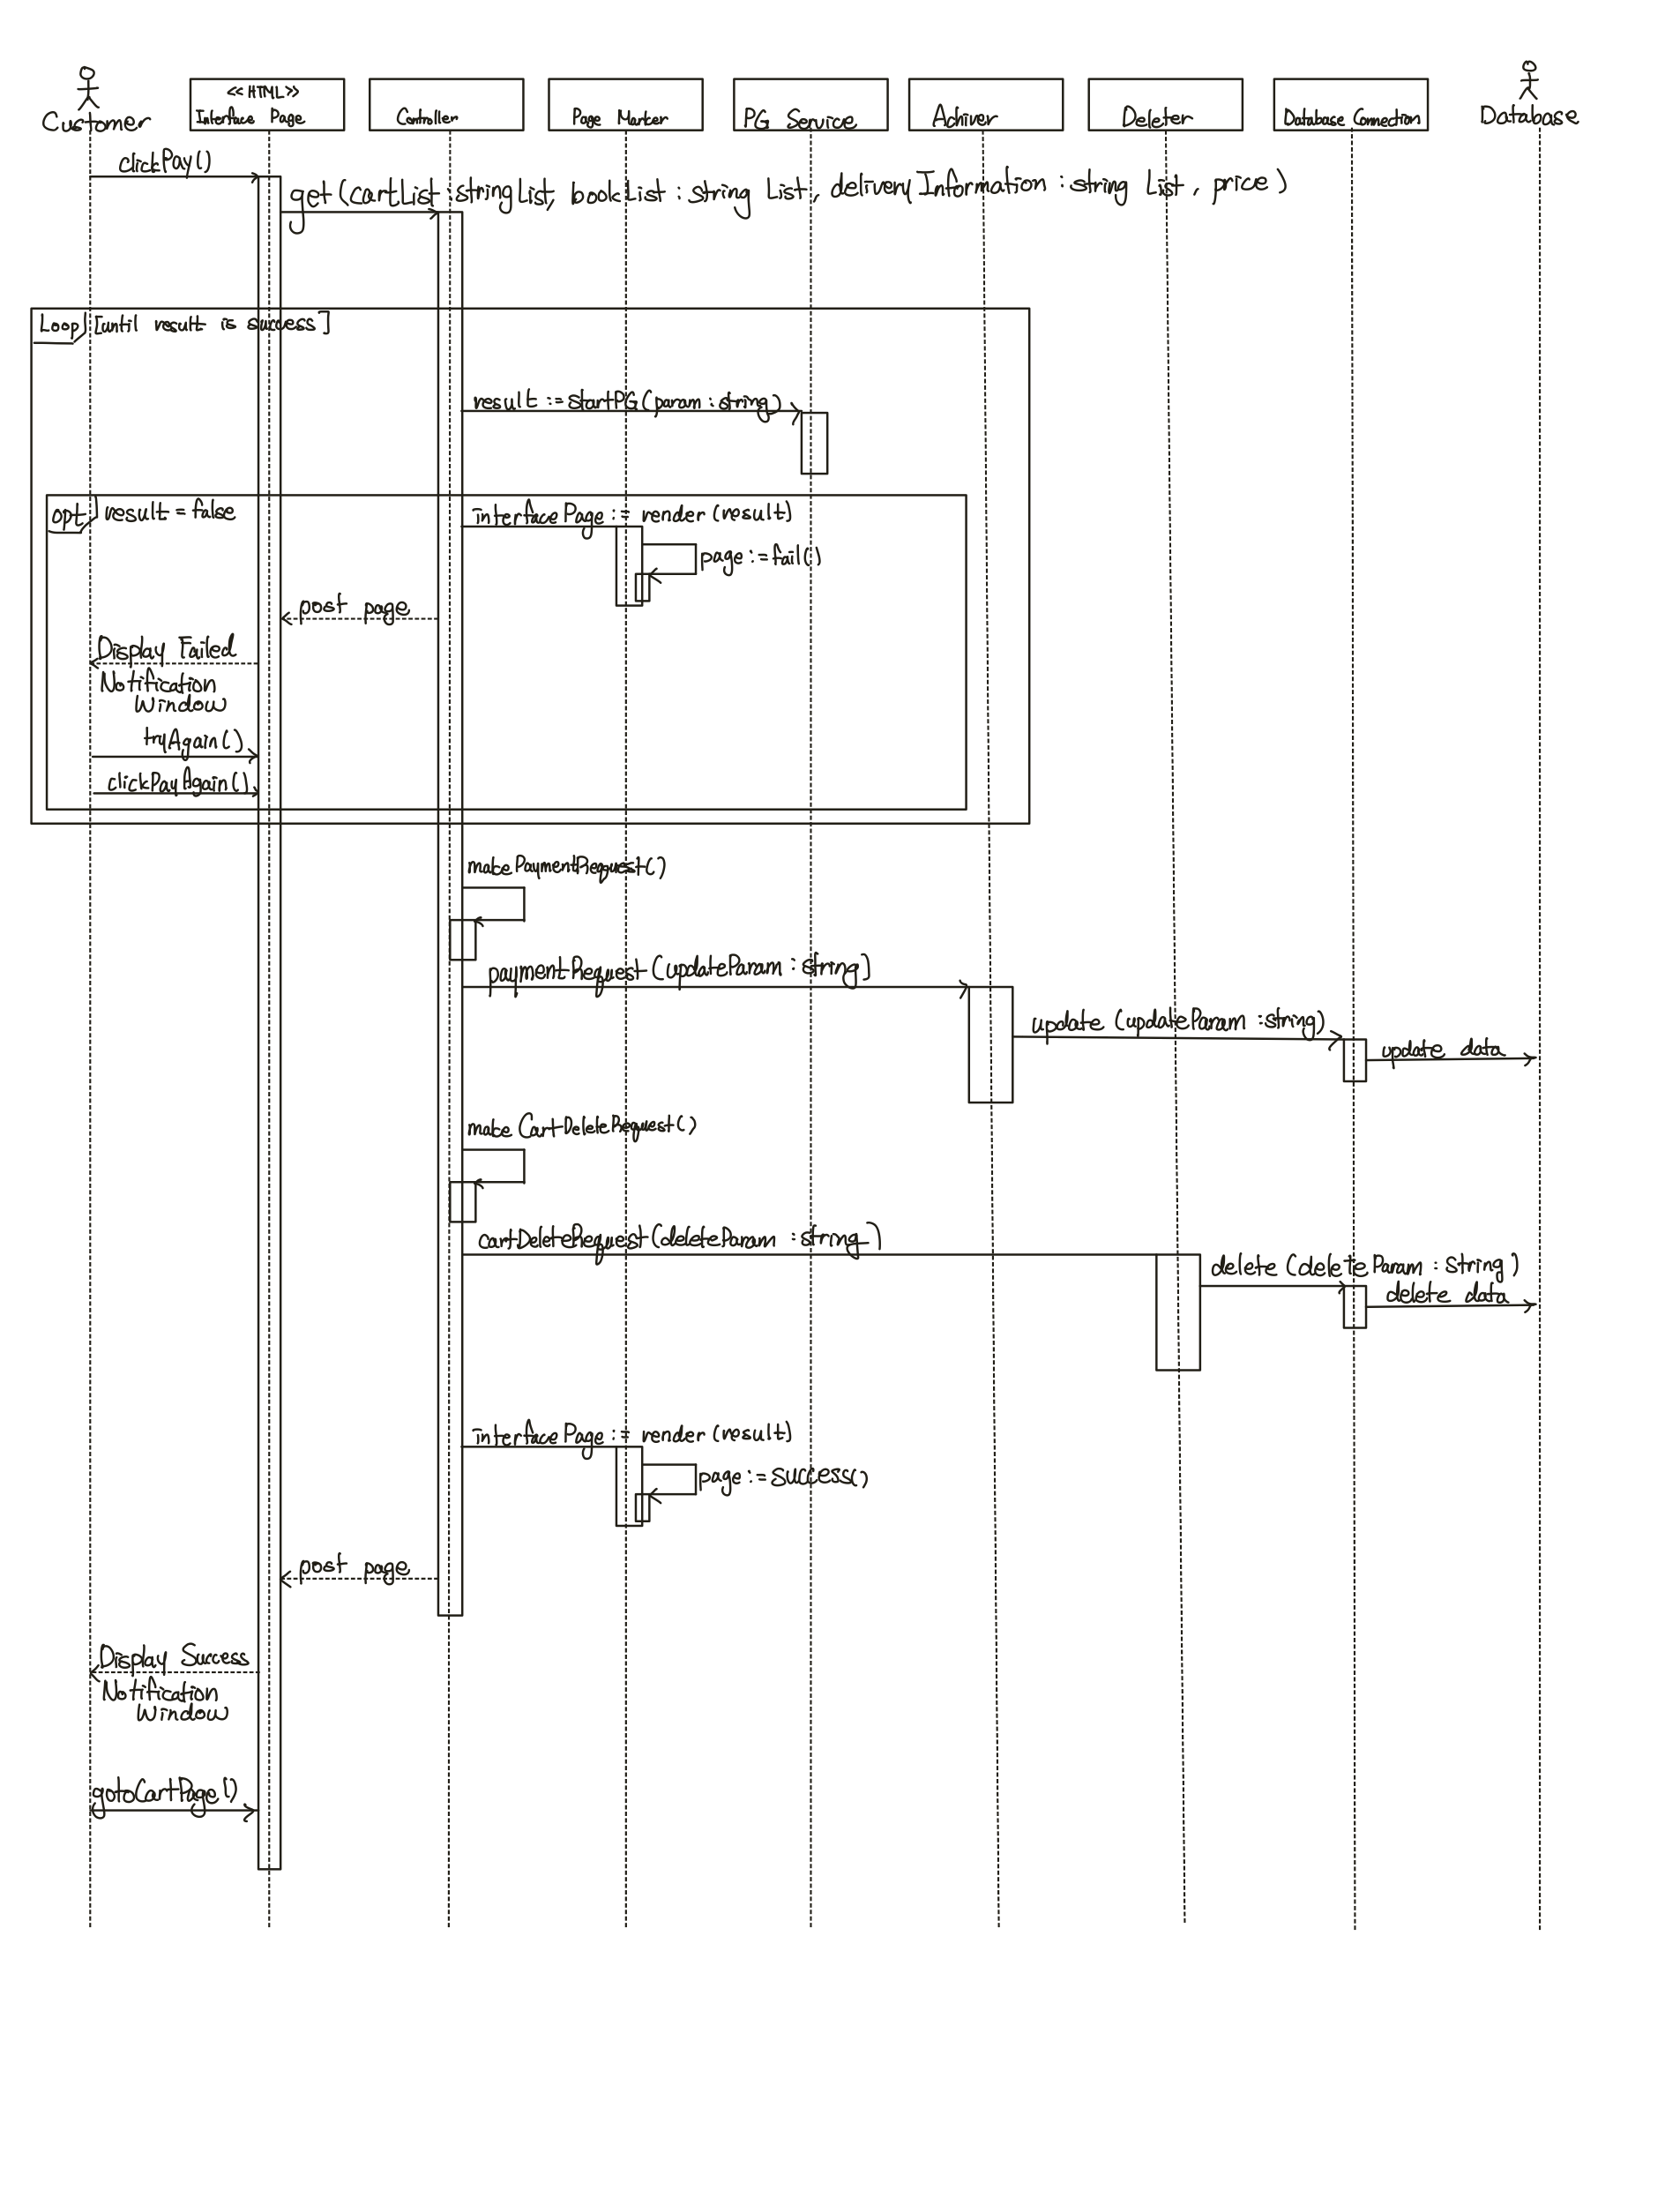 Customer
<< HTML >>
Interface Page
Controller
Page Marker
PG Service
Achiver
Deleter
Database Connection
Database
clickPay()
get (CartList : string List, bookList : string List, deliveryInformation : string List, price)
Loop [until result is success]
result := startPG(param : string)
opt result = false
interfacePage := render (result)
page := fail()
post page
Display Failed
Notification
Window
tryAgain()
clickPayAgain()
makePaymentRequest()
paymentRequest (updateParam : string)
update (updateParam : string)
update data
make CartDeleteRequest()
cartDeleteRequest (deleteParam : string)
delete (deleteParam : string)
delete data
interfacePage := render (result)
page := success()
post page
Display Success
Notification
Window
gotoCartPage()